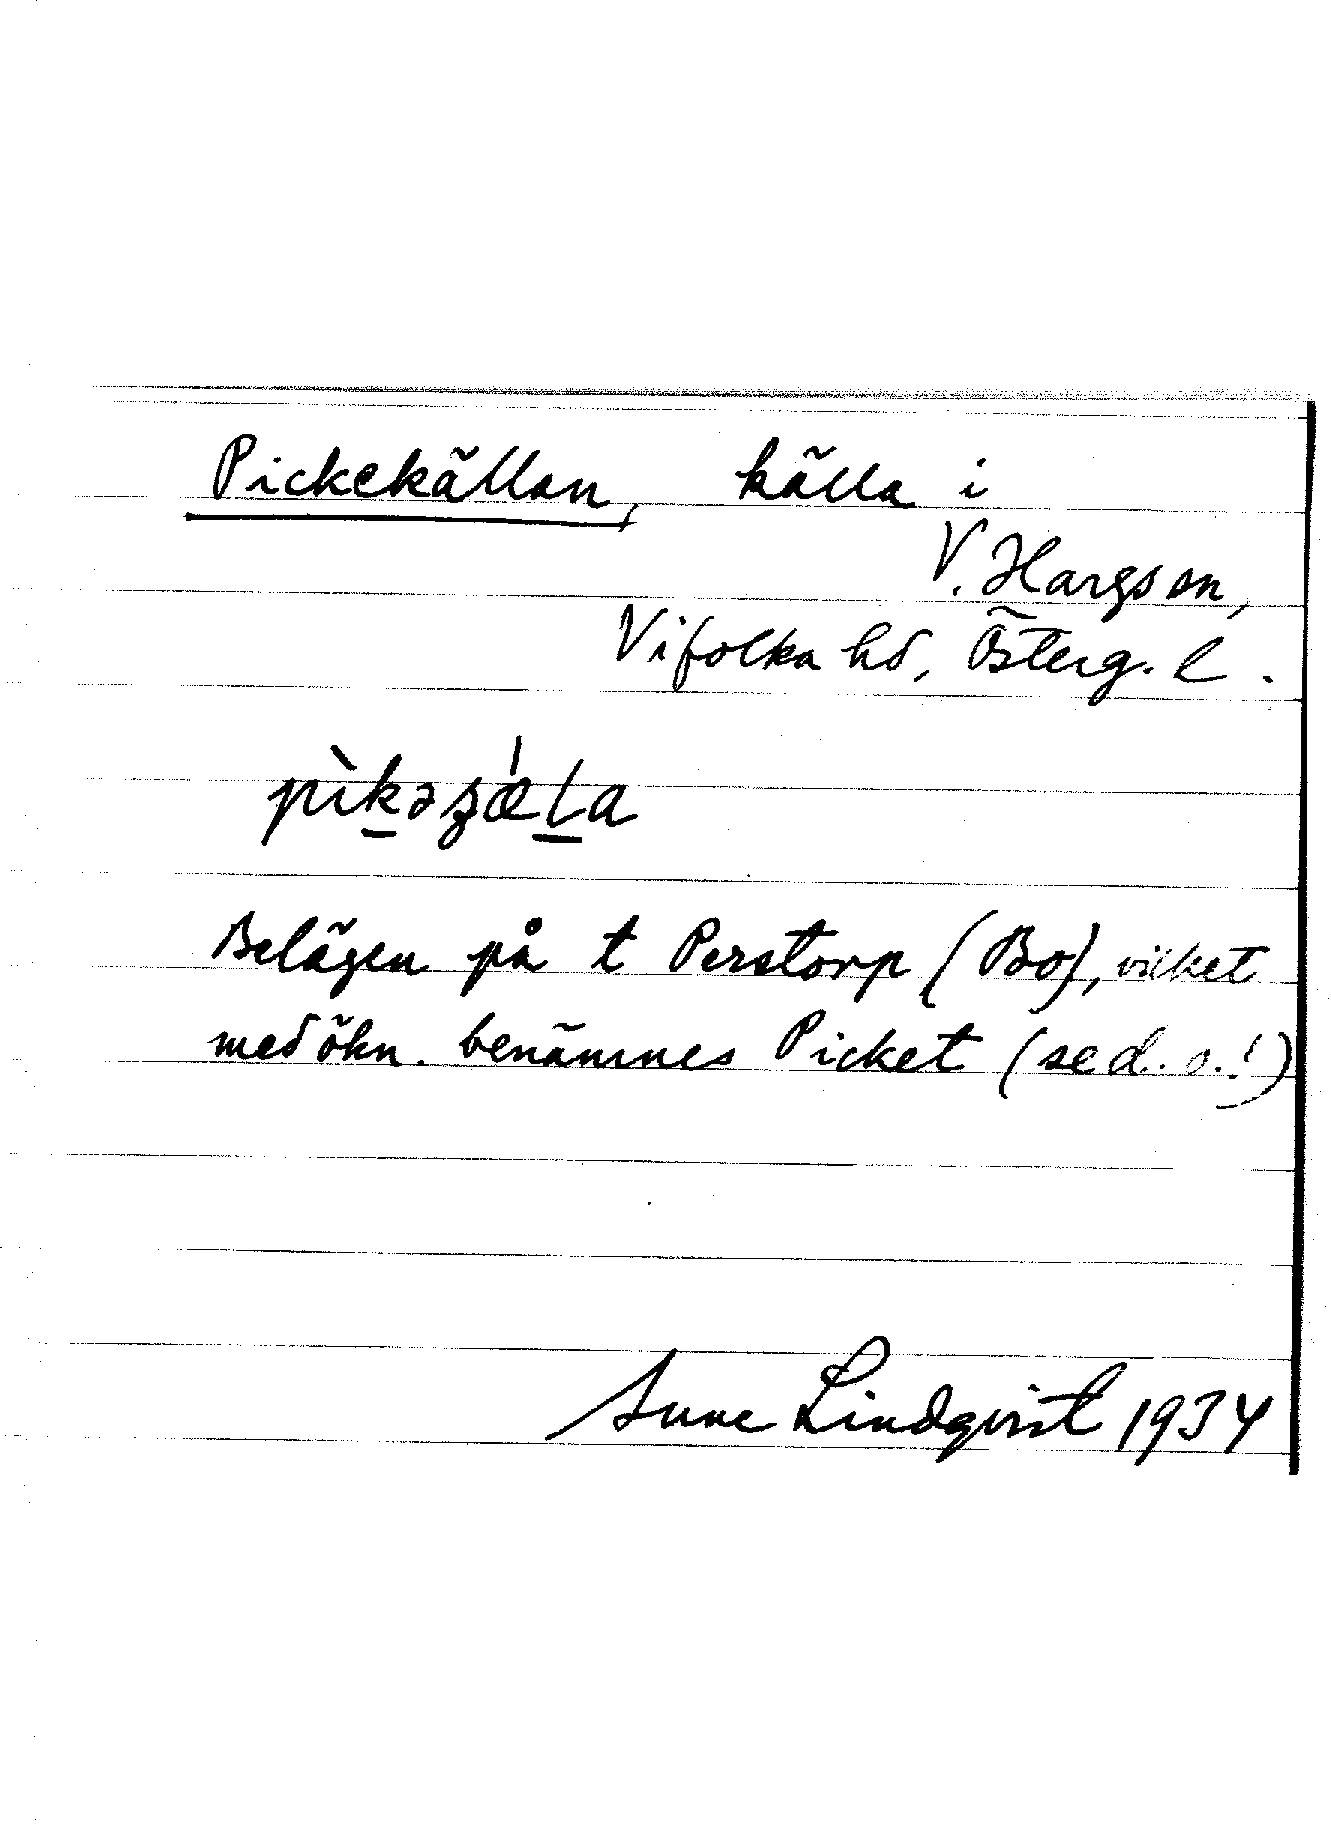 Pickekällan, källa i
V. Hargs sn,
Vifolka hd, Österg. l.
pìkəʒǽla
Belägen på t Perstorp (Bo), vilket
med ökn. benämnes Picket (se d. o.!)
Sune Lindqvist 1934